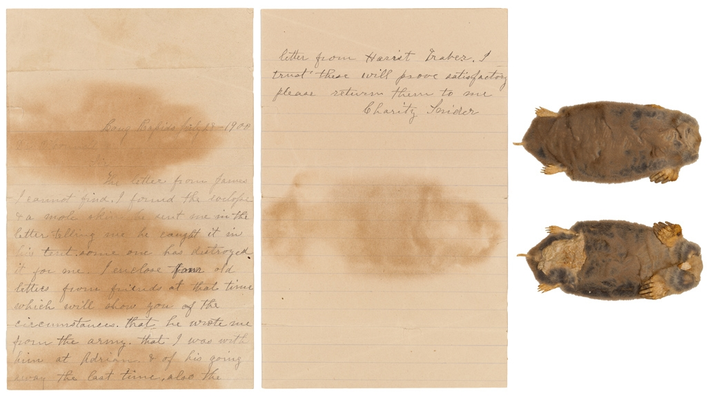 Long Rapids July 18 1900
The letter from James
I cannot find. I found the envelope
& a mole skin he sent me in the
letter telling me he caught it in
his tent some one has destroyed
it for me. I enclose four old
letters from friends at that time
which will show you of the
circumstances. that, he wrote me
from the army. that I was with
him at Adrian. & of his going
away the last time, also the
letter from Harist Traber. I
trust these will prove satisfactory
please return them to me
Charity Snider